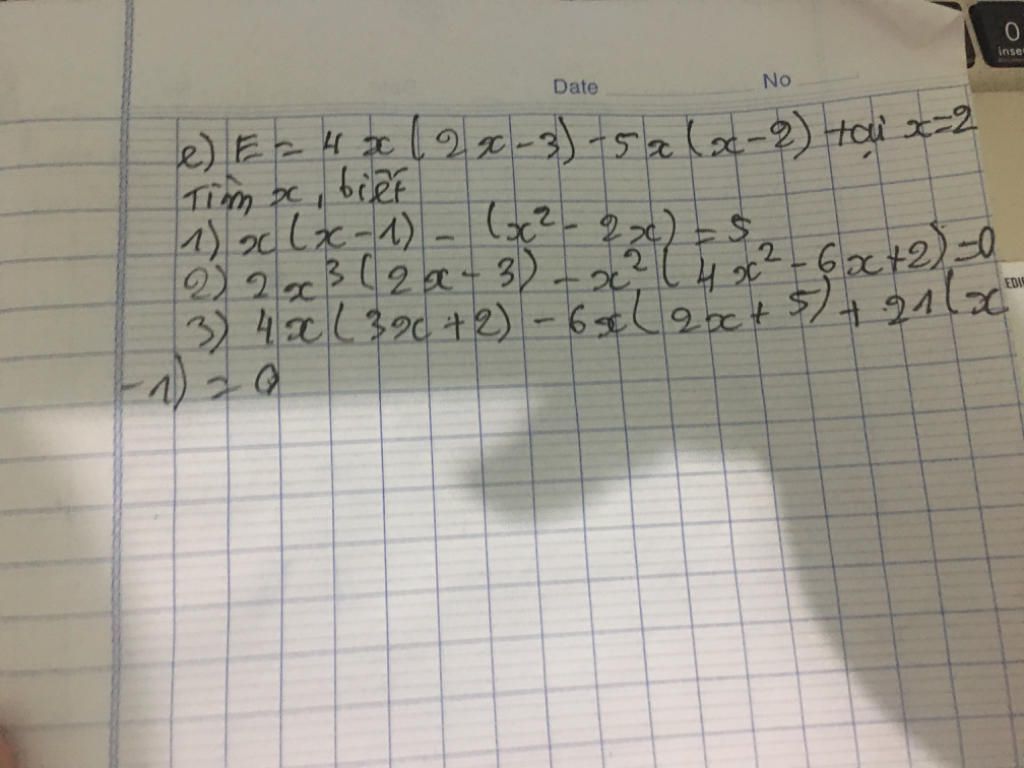 0
inse
Date No
e) E = 4x(2x-3) - 5x(x-2) tại x=2
Tìm x, biết
1) x(x-1) - (x² - 2x) = 5
2) 2x³(2x-3) - x²(4x² - 6x+2)=0
EDI
3) 4x(3x+2) - 6x(2x+5) + 21(x
-1) = 0